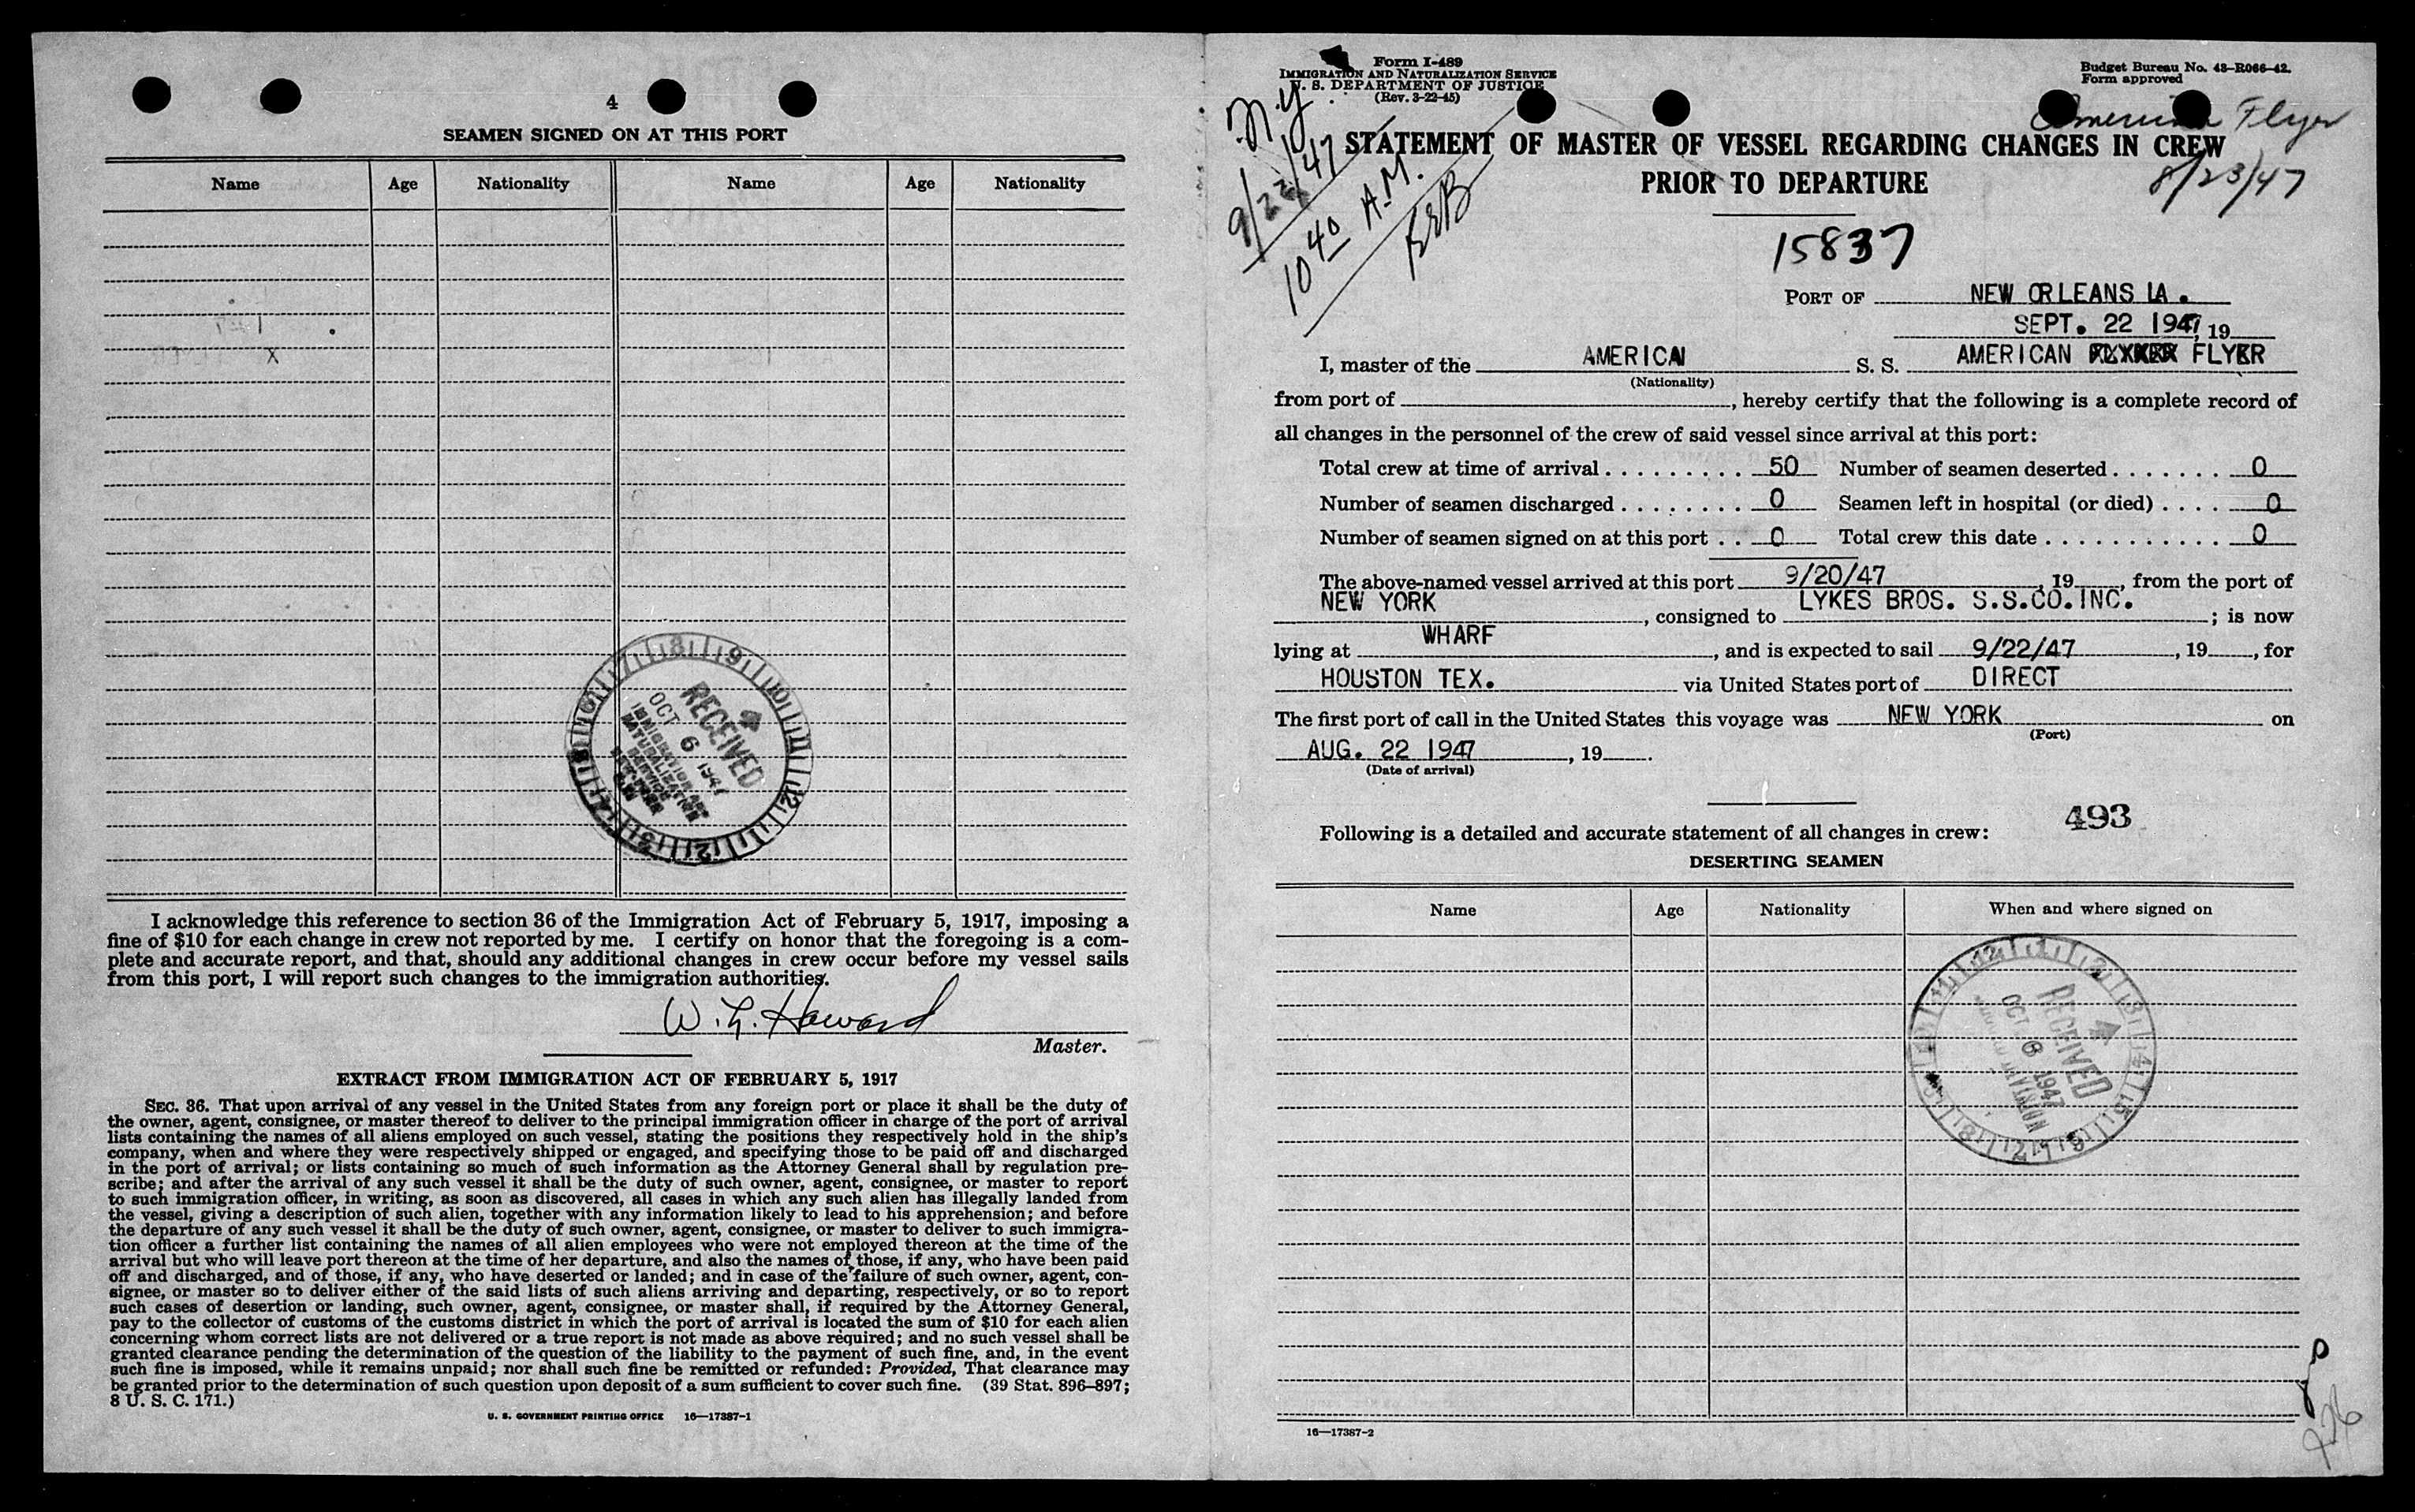 4
SEAMEN SIGNED ON AT THIS PORT
Name Age Nationality Name Age Nationality
X
RECEIVED
OCT 6 1947
IMMIGRATION AND
NATURALIZATION
SERVICE
I acknowledge this reference to section 36 of the Immigration Act of February 5, 1917, imposing a
fine of $10 for each change in crew not reported by me. I certify on honor that the foregoing is a com-
plete and accurate report, and that, should any additional changes in crew occur before my vessel sails
from this port, I will report such changes to the immigration authorities.
W. L. Howard
Master.
EXTRACT FROM IMMIGRATION ACT OF FEBRUARY 5, 1917
SEC. 36. That upon arrival of any vessel in the United States from any foreign port or place it shall be the duty of
the owner, agent, consignee, or master thereof to deliver to the principal immigration officer in charge of the port of arrival
lists containing the names of all aliens employed on such vessel, stating the positions they respectively hold in the ship's
company, when and where they were respectively shipped or engaged, and specifying those to be paid off and discharged
in the port of arrival; or lists containing so much of such information as the Attorney General shall by regulation pre-
scribe; and after the arrival of any such vessel it shall be the duty of such owner, agent, consignee, or master to report
to such immigration officer, in writing, as soon as discovered, all cases in which any such alien has illegally landed from
the vessel, giving a description of such alien, together with any information likely to lead to his apprehension; and before
the departure of any such vessel it shall be the duty of such owner, agent, consignee, or master to deliver to such immigra-
tion officer a further list containing the names of all alien employees who were not employed thereon at the time of the
arrival but who will leave port thereon at the time of her departure, and also the names of those, if any, who have been paid
off and discharged, and of those, if any, who have deserted or landed; and in case of the failure of such owner, agent, con-
signee, or master so to deliver either of the said lists of such aliens arriving and departing, respectively, or so to report
such cases of desertion or landing, such owner, agent, consignee, or master shall, if required by the Attorney General,
pay to the collector of customs of the customs district in which the port of arrival is located the sum of $10 for each alien
concerning whom correct lists are not delivered or a true report is not made as above required; and no such vessel shall be
granted clearance pending the determination of the question of the liability to the payment of such fine, and, in the event
such fine is imposed, while it remains unpaid; nor shall such fine be remitted or refunded: Provided, That clearance may
be granted prior to the determination of such question upon deposit of a sum sufficient to cover such fine. (39 Stat. 896–897;
8 U. S. C. 171.)
U. S. GOVERNMENT PRINTING OFFICE 16—17387-1
Form I-489
IMMIGRATION AND NATURALIZATION SERVICE
U. S. DEPARTMENT OF JUSTICE
(Rev. 3-22-45)
Budget Bureau No. 43-R066-42.
Form approved
American Flyer
8/23/47
N.Y.
9/22/47
10 40 A.M.
STATEMENT OF MASTER OF VESSEL REGARDING CHANGES IN CREW
PRIOR TO DEPARTURE
15837
PORT OF NEW ORLEANS LA.
SEPT. 22 1947, 19
I, master of the AMERICAN S. S. AMERICAN FLYER
(Nationality)
from port of , hereby certify that the following is a complete record of
all changes in the personnel of the crew of said vessel since arrival at this port:
Total crew at time of arrival . . . . . . . . . 50 Number of seamen deserted . . . . . . . 0
Number of seamen discharged . . . . . . . . 0 Seamen left in hospital (or died) . . . . 0
Number of seamen signed on at this port . . 0 Total crew this date . . . . . . . . . . . . 0
The above-named vessel arrived at this port 9/20/47, 19 , from the port of
NEW YORK , consigned to LYKES BROS. S.S.CO.INC. ; is now
lying at WHARF , and is expected to sail 9/22/47 , 19 , for
HOUSTON TEX. via United States port of DIRECT
The first port of call in the United States this voyage was NEW YORK on
(Port)
AUG. 22 1947 , 19 .
(Date of arrival)
493
Following is a detailed and accurate statement of all changes in crew:
DESERTING SEAMEN
Name Age Nationality When and where signed on
RECEIVED
OCT 6 1947
16—17387-2